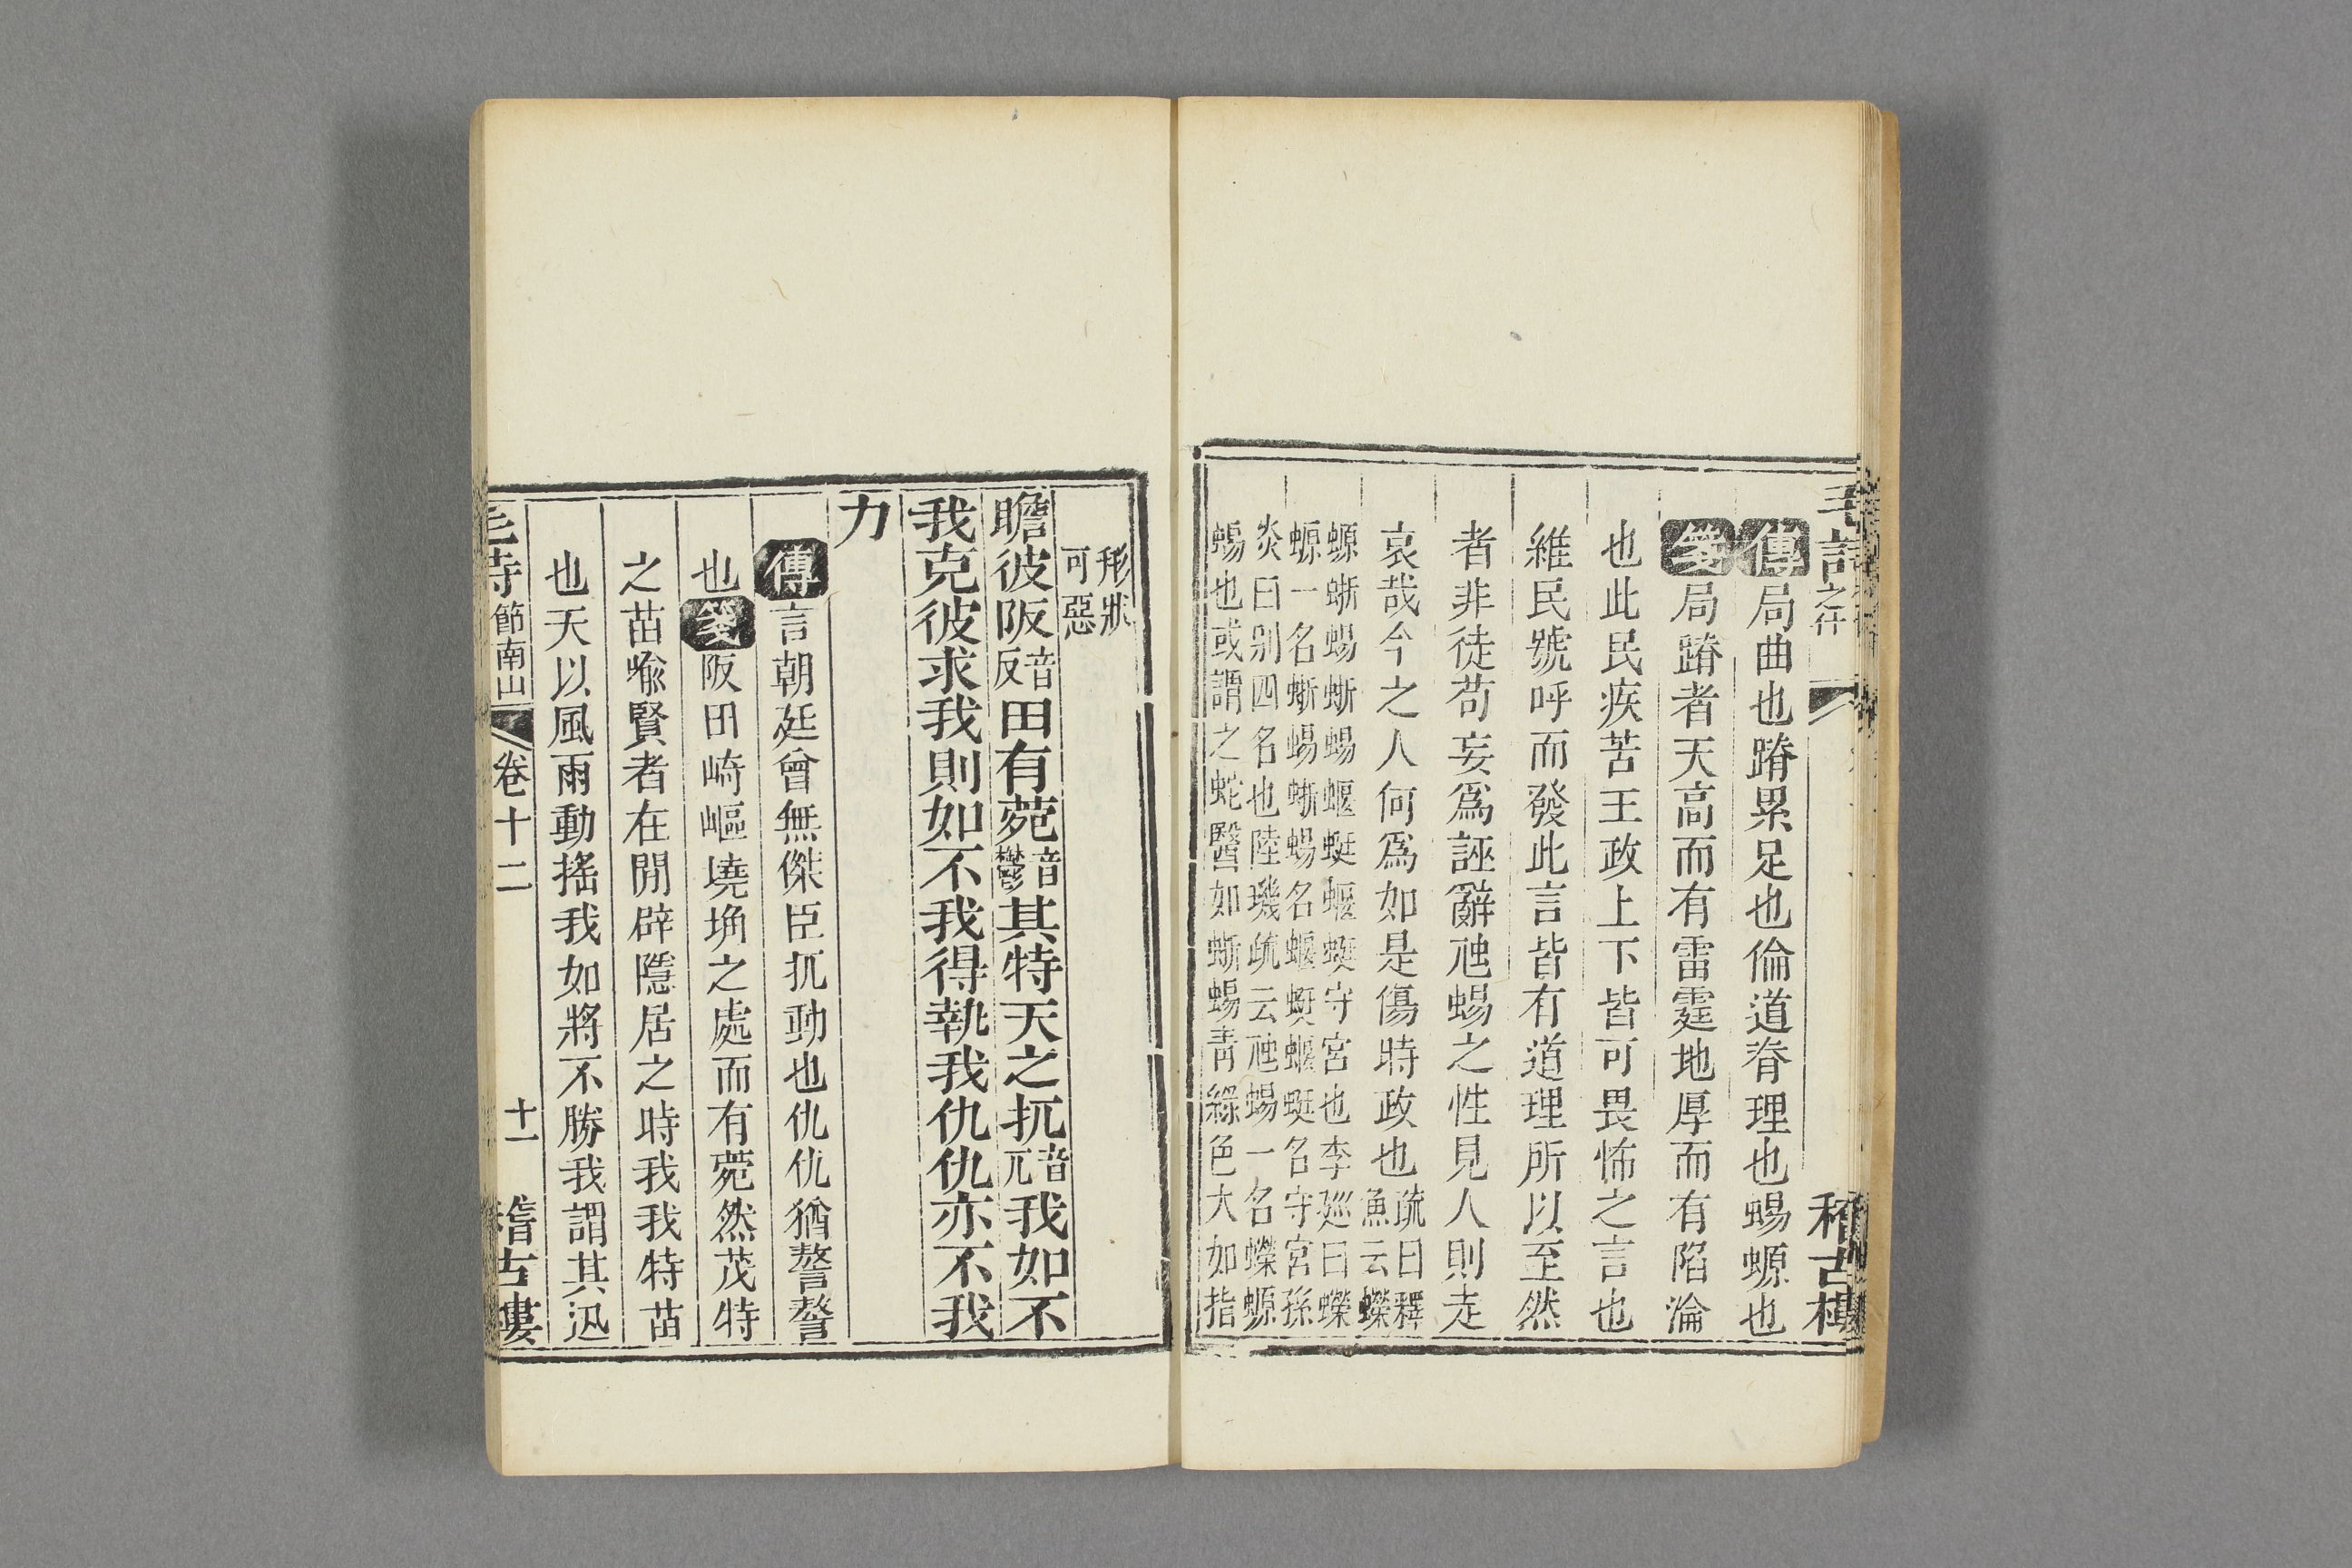 傳局曲也蹐累足也倫道脊理也蜴螈也
箋局蹐者天高而有雷霆地厚而有陷淪
也此民疾苦王政上下皆可畏怖之言也
維民號呼而發此言皆有道理所以至然
者非徒苟妄爲誣辭虺蜴之性見人則走
哀哉今之人何爲如是傷時政也疏曰釋魚云蠑
螈蜥蜴蜥蜴蝘蜓蝘蜓守宮也李廵曰蠑
螈一名蜥蜴蜥蜴名蝘蜓蝘蜓名守宮孫
炎曰別四名也陸璣疏云虺蜴一名蠑螈
蜴也或謂之蛇醫如蜥蜴靑綠色大如指
形狀可惡
瞻彼阪音反田有菀音鬱其特天之扤音兀我如不
我克彼求我則如不我得執我仇仇亦不我
力
傳言朝廷曾無傑臣扤動也仇仇猶謷謷
也箋阪田崎嶇墝埆之處而有菀然茂特
之苗喩賢者在閒辟隱居之時我我特苗
也天以風雨動搖我如將不勝我謂其迅
毛詩 節南山 卷十二 十一 稽古樓